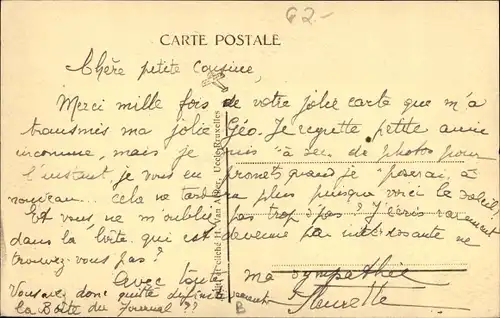 62-
CARTE POSTALE
Chère petite Cousine,
Merci mille fois de votre jolie carte que m'a
transmis ma jolie Géo. Je regrette petite amie
inconnue, mais je suis "à sec" de photos pour
l'instant, je vous en promets quand je "poserai" à
nouveau. Cela ne tardera plus puisque voici le soleil!
Et vous ne m'oubliez pas trop épas? J'écris rarement
dans la boîte qui est devenue pas intéressante ne
trouvez-vous pas?
Avec toute ma sympathie
Vous avez donc quitté définitivement Fleurette
la Boîte du Journal ???
cliché H. Van Uccle-Bruxelles
B